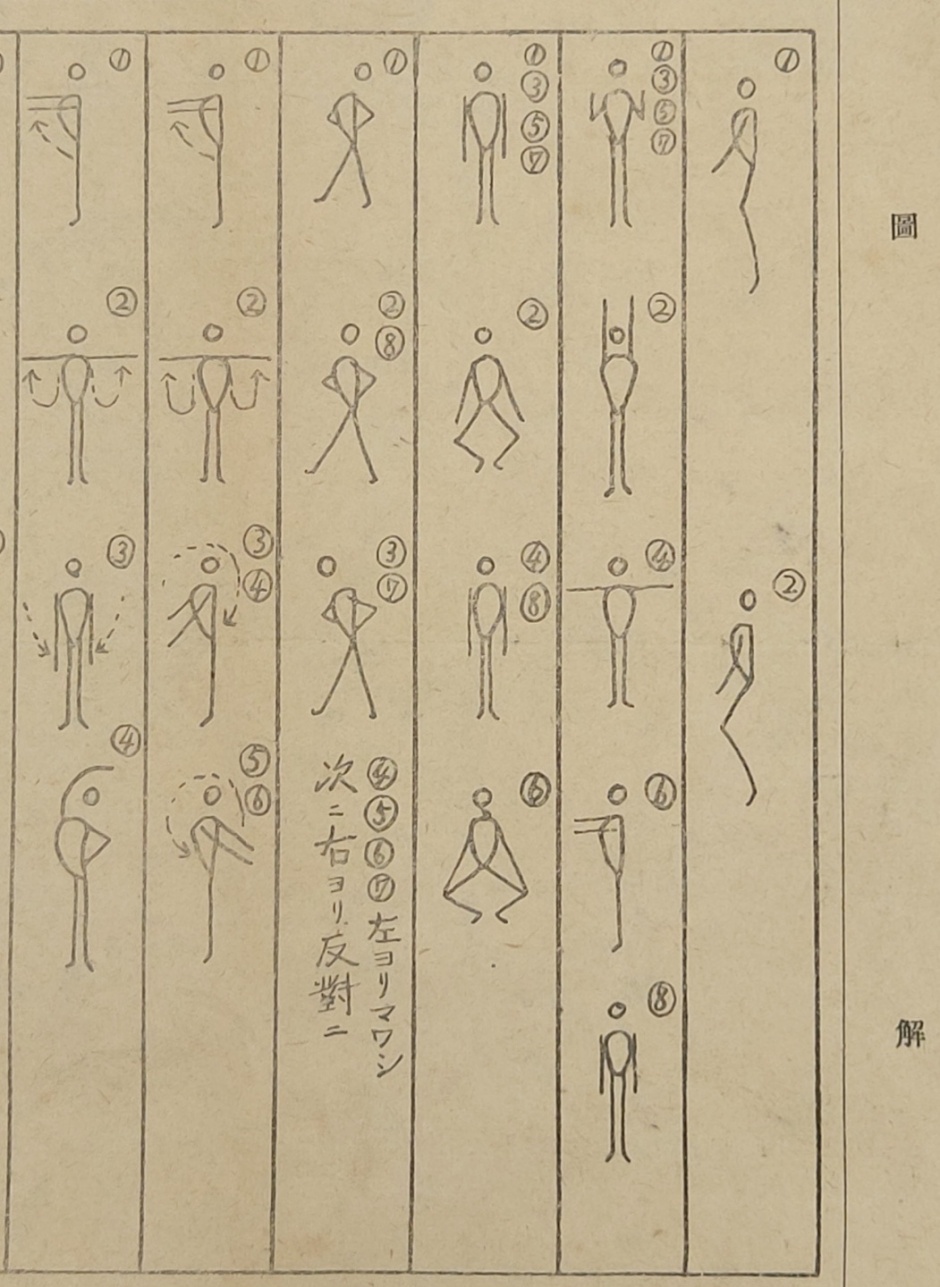 圖解
①
②
①③⑤⑦
②
④
⑥
⑧
①③⑤⑦
②
④⑧
⑥
①
②⑧
③⑦
④⑤⑥⑦左ヨリマワシ
次ニ右ヨリ反對ニ
①
②
③④
⑤⑥
①
②
③
④